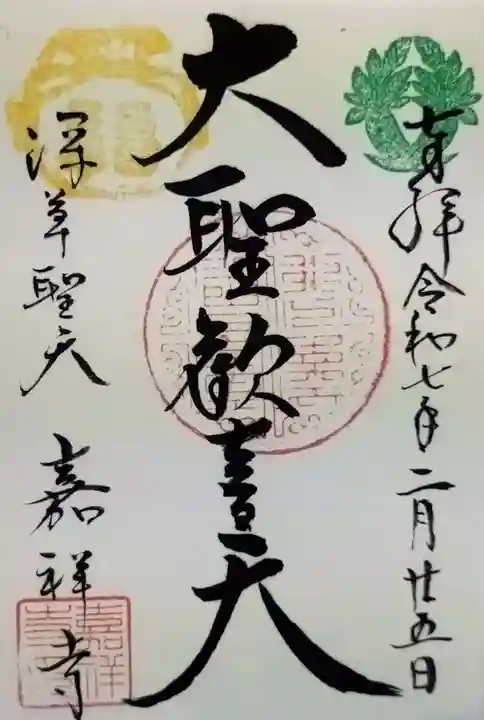 奉拝 令和七年二月廿五日
大聖歓喜天
深草聖天 嘉祥寺
嘉祥
寺